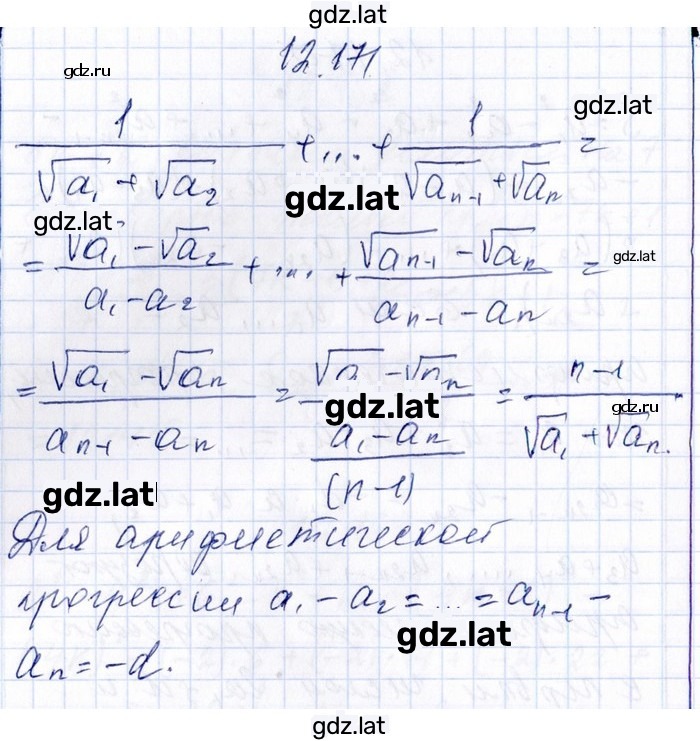 gdz.lat
12.171
gdz.ru
gdz.lat
1/(√a₁ + √a₂) + ... + 1/(√aₙ₋₁ + √aₙ) =
gdz.lat
gdz.lat
= (√a₁ - √a₂)/(a₁ - a₂) + ... + (√aₙ₋₁ - √aₙ)/(aₙ₋₁ - aₙ) =
gdz.lat
= (√a₁ - √aₙ)/(aₙ₋₁ - aₙ) = (√a₁ - √aₙ)/((a₁ - aₙ)/(n-1)) = (n-1)/(√a₁ + √aₙ).
gdz.lat
gdz.ru
gdz.lat
Для арифметической
прогрессии a₁ - a₂ = ... = aₙ₋₁ -
gdz.lat
aₙ = -d.
gdz.lat